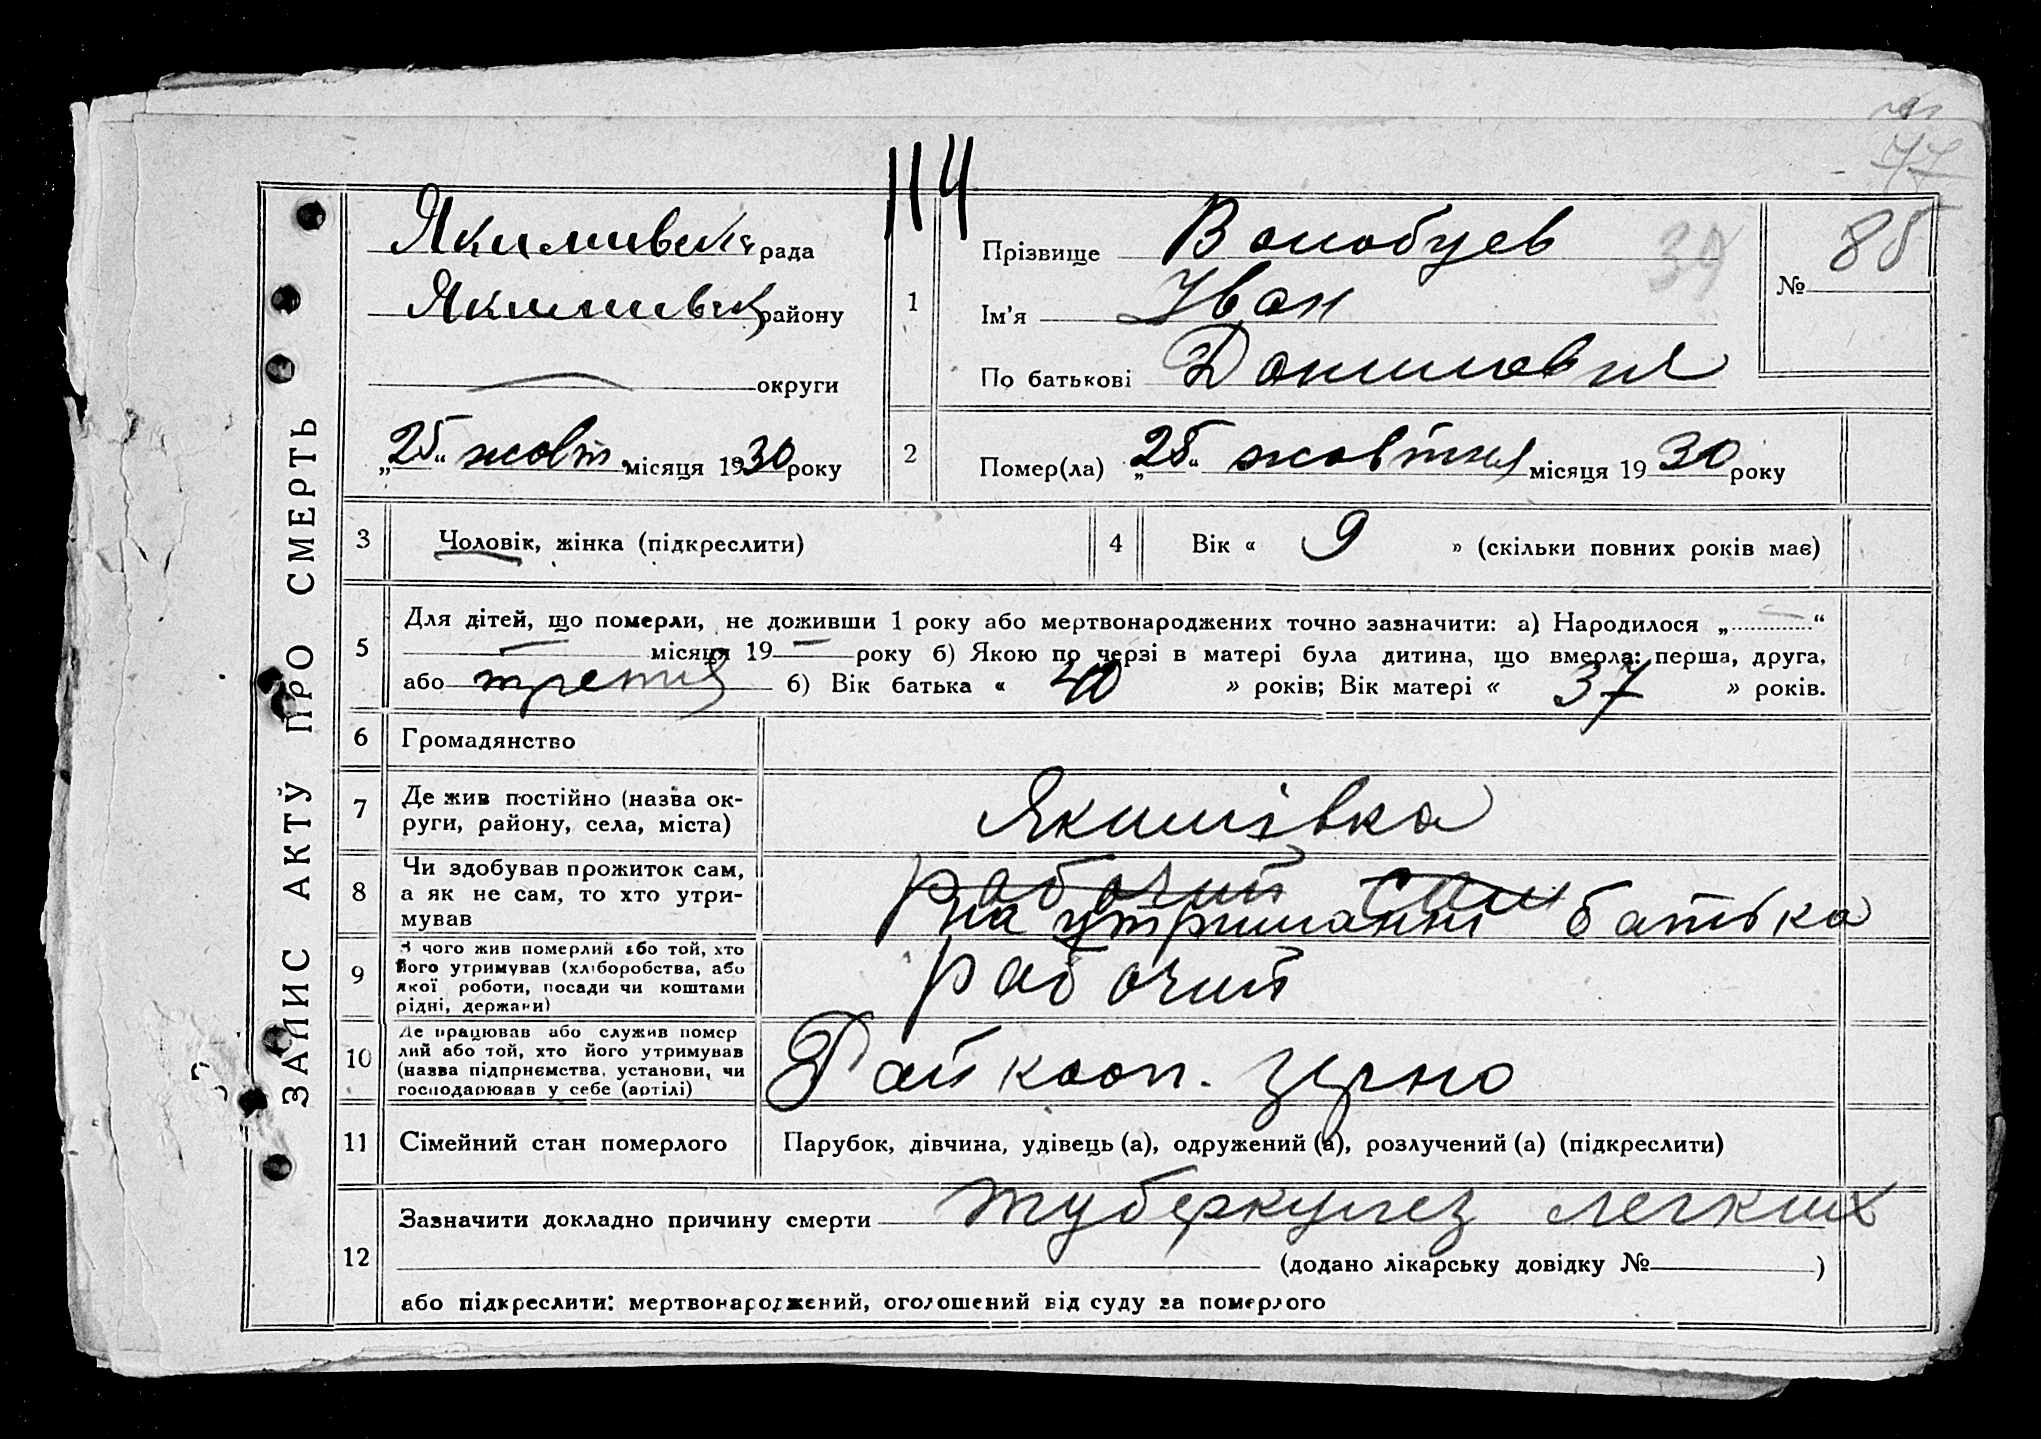 77
114
ЗАПИС АКТУ ПРО СМЕРТЬ
Якимивська рада
Якимивськ району
округи
„25“ жовт. місяця 1930 року
1
Прізвище Волобуев
39
№ 85
Ім'я Іван
По батькові Данилович
2
Помер(ла) „25“ жовтня місяця 1930 року
3
Чоловік, жінка (підкреслити)
4
Вік « 9 » (скільки повних років має)
5
Для дітей, що померли, не доживши 1 року або мертвонароджених точно зазначити: а) Народилося „ — “
— місяця 19 — року б) Якою по черзі в матері була дитина, що вмерла: перша, друга,
або третия б) Вік батька « 40 » років; Вік матері « 37 » років.
6 Громадянство
7 Де жив постійно (назва ок-
руги, району, села, міста)
Якимівка
8 Чи здобував прожиток сам,
а як не сам, то хто утри-
мував
рабочий сам
на утриманні батька
9 З чого жив померлий або той, хто
його утримував (хліборобства, або
якої роботи, посади чи коштами
рідні, держави)
рабочий
10 Де працював або служив помер
лий або той, хто його утримував
(назва підприємства, установи, чи
господарював у себе (артілі)
Райкооп. зерно
11 Сімейний стан померлого
Парубок, дівчина, удівець (а), одружений (а), розлучений (а) (підкреслити)
12
Зазначити докладно причину смерти туберкулез легких
(додано лікарську довідку № )
або підкреслити: мертвонароджений, оголошений від суду за померлого